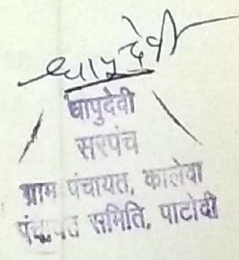 धापुदेवी
धापुदेवी
सरपंच
ग्राम पंचायत, कालेवा
पंचायत समिति, पाटोदी